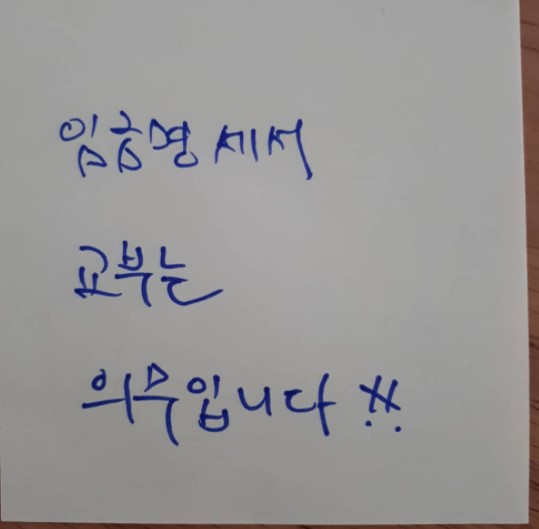 임금명세서
교부는
의무입니다!!